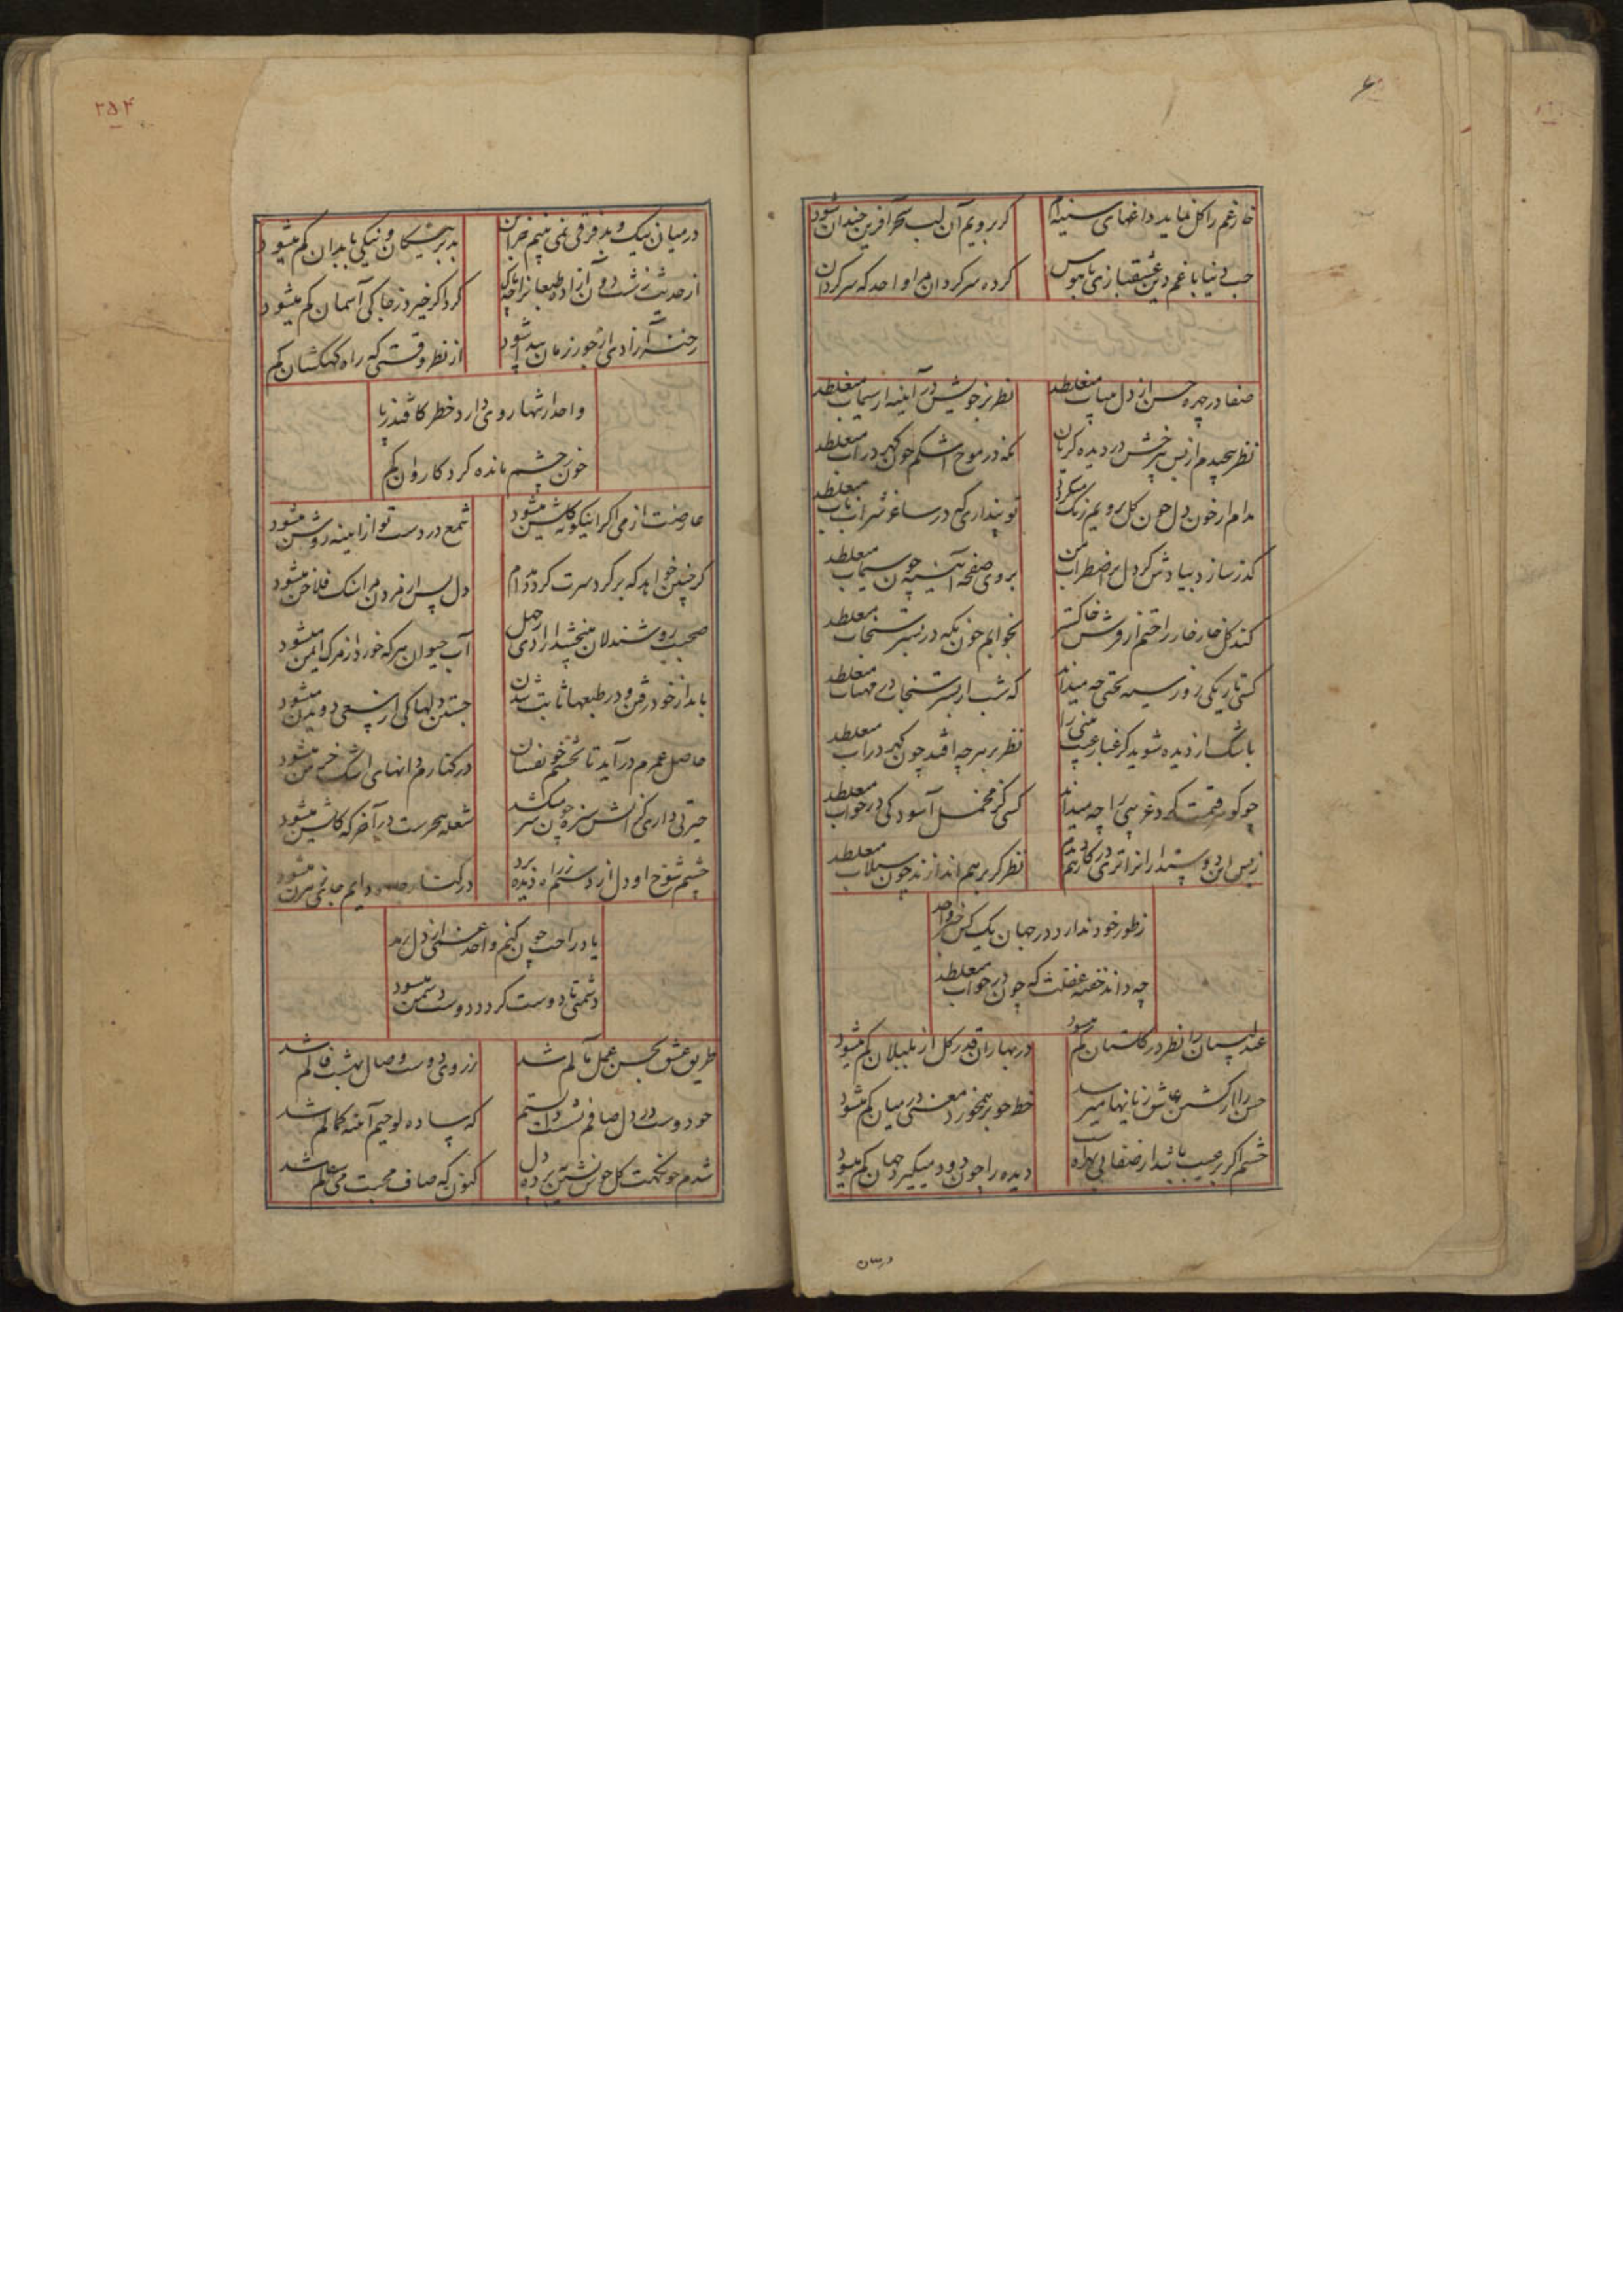 خار غم را گل نماید داغهای سینه‌ام
گر برویم آن لب سحر آفرین خندان شود
حب دنیا با غم دین عشقبازی با هوس
کرده سرگردان مرا واحد که سرگردان
صفا در چهره حسن از دل بیتاب میغلطد
نظر بر خویش در آینه از سیماب میغلطد
نظر پیچیدم از بس بر خش در دیده گریان
نگه در موج اشکم چون گهر در آب میغلطد
مدام از خون دل چون گل برویم رنگ میگردد
تو پنداری که در ساغر شراب ناب میغلطد
گذر سازد بیادش گر دل پر اضطراب من
بروی صفحه آیینه چون سیماب میغلطد
کند گل خار خار راحتم از فرش خاکستر
بخوابم خون نگه در بستر سنجاب میغلطد
کسی تاریکی روز سیه بختی چه میداند
که شب از بستر سنجاب در مهتاب میغلطد
باشک از دیده شوید گر غبار عیب بینی را
نظر بر هر چه افتد چون گهر در آب میغلطد
چو گور قیمت گرد غریبی را چه میداند
کسی کز مخمل آسودگی در خواب میغلطد
نظر گر بر هم اندازند چون سیلاب میغلطد
ز طور خود ندارد در جهان یک کس خبر واحد
چه داند خفته غفلت که چون در خواب میغلطد
عندلیبان را نظر در گلستان کم میشود
در بهاران قدر گل از بلبلان کم میشود
حسن را از کشتن عاشق زیانها میرسد
خط چو بر هم خورد معنی در میان کم میشود
چشم اگر بر عیب باشد از صفا بی بهره است
دیده را چون دود میگیرد جهان کم میشود
درمیان
۲۵۴
در میان نیک و بد فرقی نمی بینم جز آن
بد بر نیکان و نیکی با بدان کم میشود
از حدیث زشت دونان آزاده طبعانرا چه باک
گرد اگر خیزد ز خاکی آسمان کم میشود
رخنه آزادی از جور زمان پیدا شود
از نظر وقتی که راه کهکشان کم
واحد از تنها روی دارد خطر کافتد ز پا
خون چشم مانده گرد کاروان کم
عارضت از می اگر اینگونه گلشن میشود
شمع در دست تو از آیینه روشن میشود
گر چنین خواهد که بر گرد سرت گردد مدام
دل پس از مردن مرا سنگ فلاخن میشود
صحبت روشندلان میبخشد آزادی ز جهل
آب حیوان هر که خورد از مرگ ایمن میشود
باید از خود رفتن و در طبعها ثابت شدن
جستن دلها کی از سعی دویدن میشود
حاصل عمرم در آید تا بچشم خونفشان
در کنارم دانهای اشک خرمن میشود
حیرتی دارم کز آتش سبزه چون سر میکشد
شعله هجرست در آخر که گلشن میشود
چشم شوخ او دل از دستم ز راه دیده برد
یاد راحت چون کنم واحد غمش از دل رمد
دشمنی تا دوست گردد دوست دشمن میشود
طریق عشق بحسن عمل مآلم شد
ز روی دوست وصال بهشت فالم شد
چو دوست در دل صافم نشست دانستم
که ساده لوحیم آینه کمالم شد
شدم چو نکهت گل خوش نشین پرده دل
کنون که صاف محبت می زلالم شد